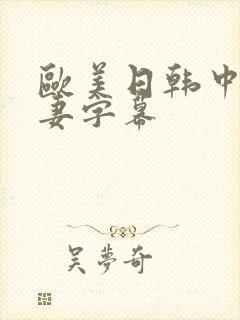 歐美日韩中
妻字幕
吴夢奇